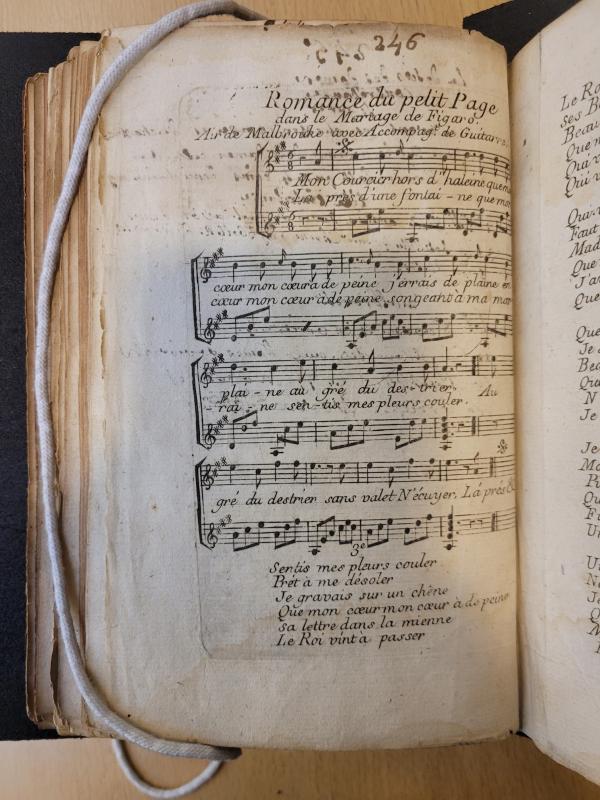 246
Romance du petit Page
dans le Mariage de Figaro.
Air de Malbrouke avec Accompagt. de Guitarre.
Mon Coursier hors d'haleine que m
La près d'une fontai - ne que mo
cœur mon cœur à de peine j'errais de plaine en
cœur mon cœur à de peine songeant à ma mar
plai - ne au gré du des - trier. Au
- rai - ne sen - tis mes pleurs couler.
gré du destrier sans valet N'écuyer. Là près &
3e
Sentis mes pleurs couler
Prêt à me désoler
Je gravais sur un chêne
Que mon cœur mon cœur à de peine
sa lettre dans la mienne
Le Roi vint à passer
Le Ro
ses B
Beau
Que m
Qui v
Qui v
Qui v
Faut
Mad
Que
J'a
Que
Que
Je
Bea
Qu
N
Je
Je
Ma
P
Qu
F
Un
U
N
Je
Q
M